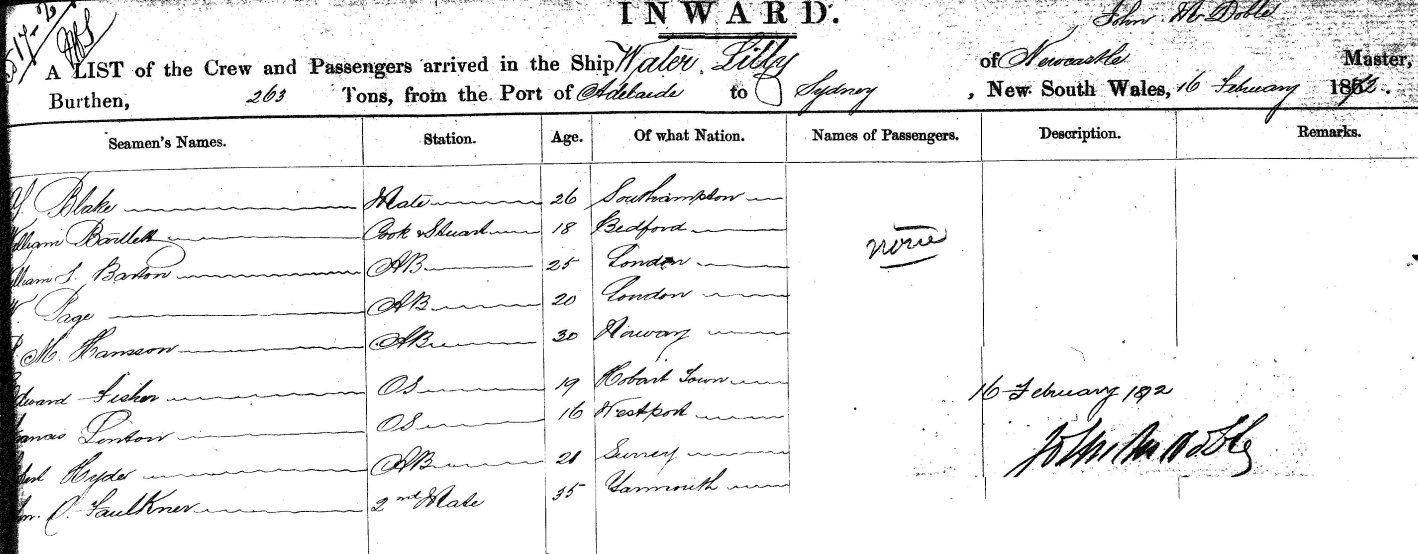 INWARD.
John M. Doble
A LIST of the Crew and Passengers arrived in the Ship Water Lilly of Newcastle Master,
Burthen, 263 Tons, from the Port of Adelaide to Sydney, New South Wales, 16 February 1872.
Seamen's Names. Station. Age. Of what Nation. Names of Passengers. Description. Remarks.
Blake Mate 26 Southampton
William Bartlett Cook & Stuart 18 Bedford
none
William S. Barton AB 25 London
Page AB 20 London
M. Hansson AB 30 Norway
Edward Fisher OS 19 Hobart Town
16 February 1872
Francis Lenton OS 16 Westport
Hyder AB 21 Surrey
John M Doble
Faulkner 2nd Mate 35 Yarmouth